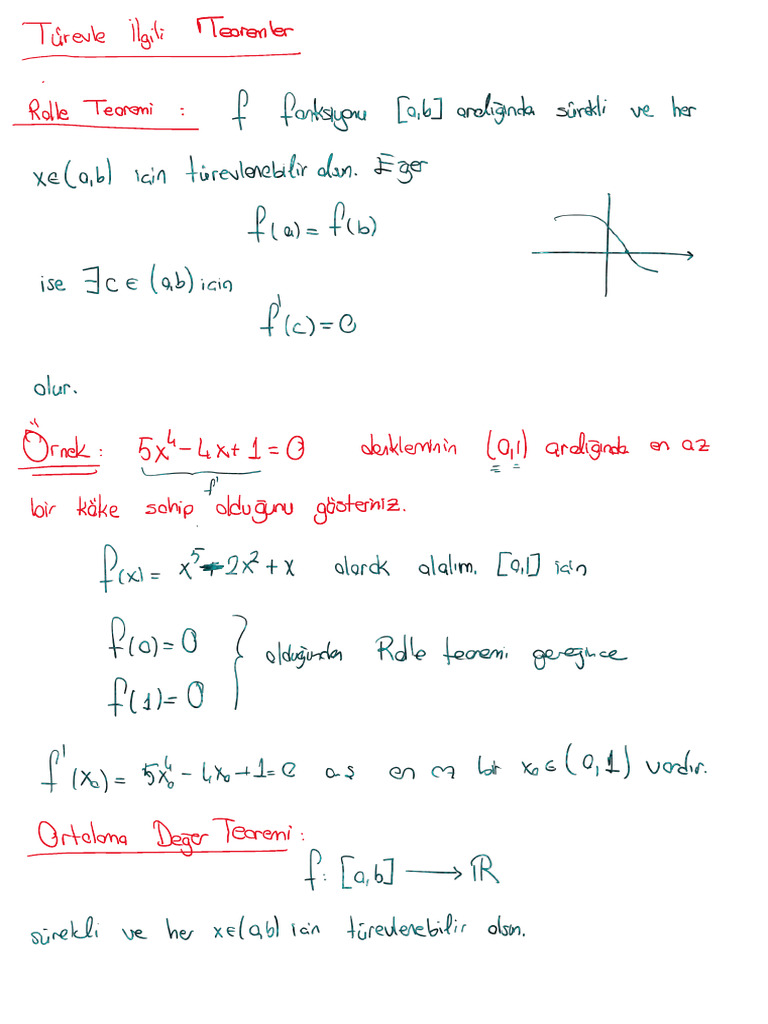 Türevle İlgili Teoremler
Rolle Teoremi : f fonksiyonu [a,b] aralığında sürekli ve her
x∈(a,b) için türevlenebilir olsn. Eğer
f(a) = f(b)
ise ∃c ∈ (a,b) için
f'(c) = 0
olur.
Örnek: 5x⁴ - 4x + 1 = 0 denkleminin (0,1) aralığında en az
f'
bir köke sahip olduğunu gösteriniz.
f(x) = x⁵ - 2x² + x olarak alalım. [0,1] için
f(0) = 0
f(1) = 0 } olduğundan Rolle teoremi gereğince
f'(x₀) = 5x₀⁴ - 4x₀ + 1 = 0 o.ş en az bir x₀ ∈ (0,1) vardır.
Ortalama Değer Teoremi :
f: [a,b] ⟶ ℝ
sürekli ve her x∈(a,b) için türevlenebilir olsn.